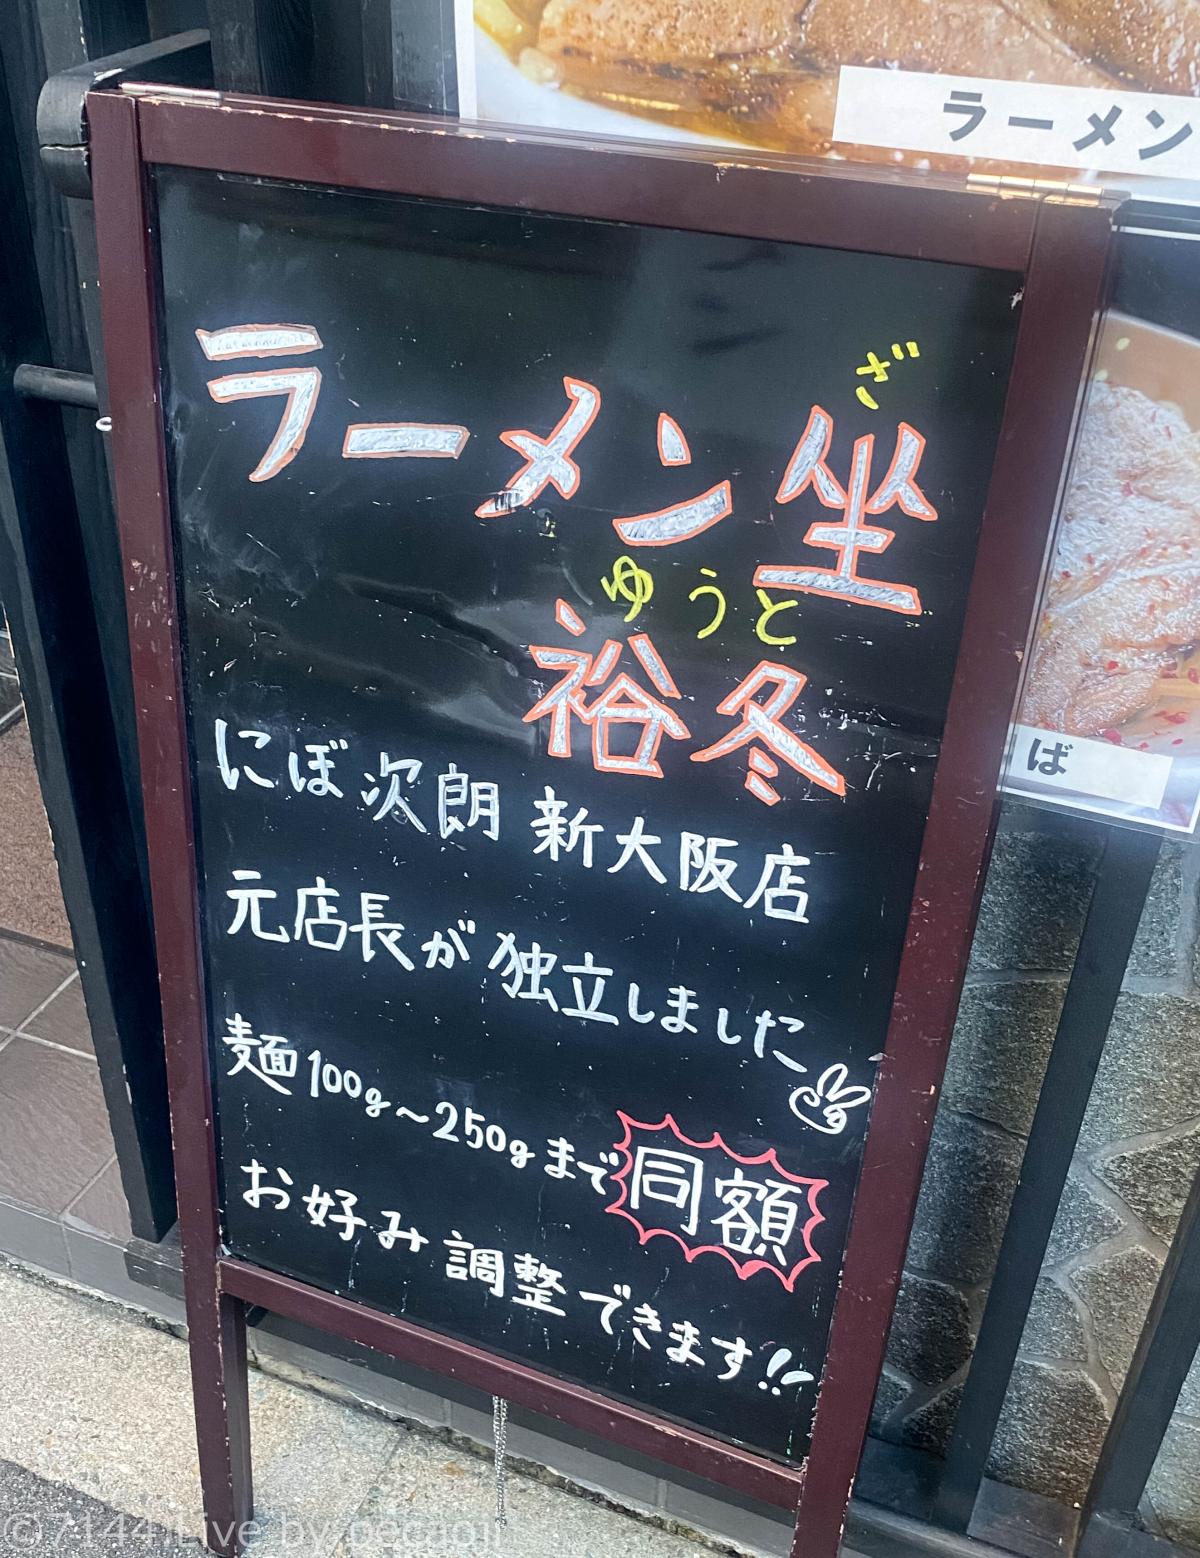 ラーメン
ざ
ラーメン坐
ゆうと
裕冬
にぼ次朗 新大阪店
元店長が独立しました
麺100g～250gまで同額
お好み調整できます!!
ば
©7144 Live by pecaoji